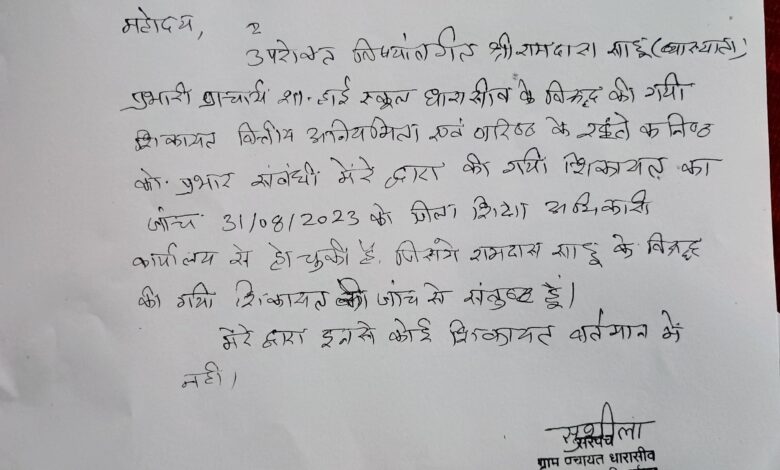 महोदय,
उपरोक्त विषयांतर्गत श्री रामदास साहू (व्याख्याता)
प्रभारी प्राचार्य शा. हाई स्कूल धारासीव के विरूद्ध की गयी
शिकायत वित्तीय अनियमिता एवं वरिष्ठ के रहते कनिष्ठ
को प्रभार संबंधी मेरे द्वारा की गयी शिकायत का
जांच 31/08/2023 को जिला शिक्षा अधिकारी
कार्यालय से हो चुकी है, जिसमे रामदास साहू के विरूद्ध
की गयी शिकायत की जांच से संतुष्ट हूँ।
मेरे द्वारा इनसे कोई शिकायत वर्तमान में
नही।
सुशीला
सरपंच
ग्राम पंचायत धारासीव